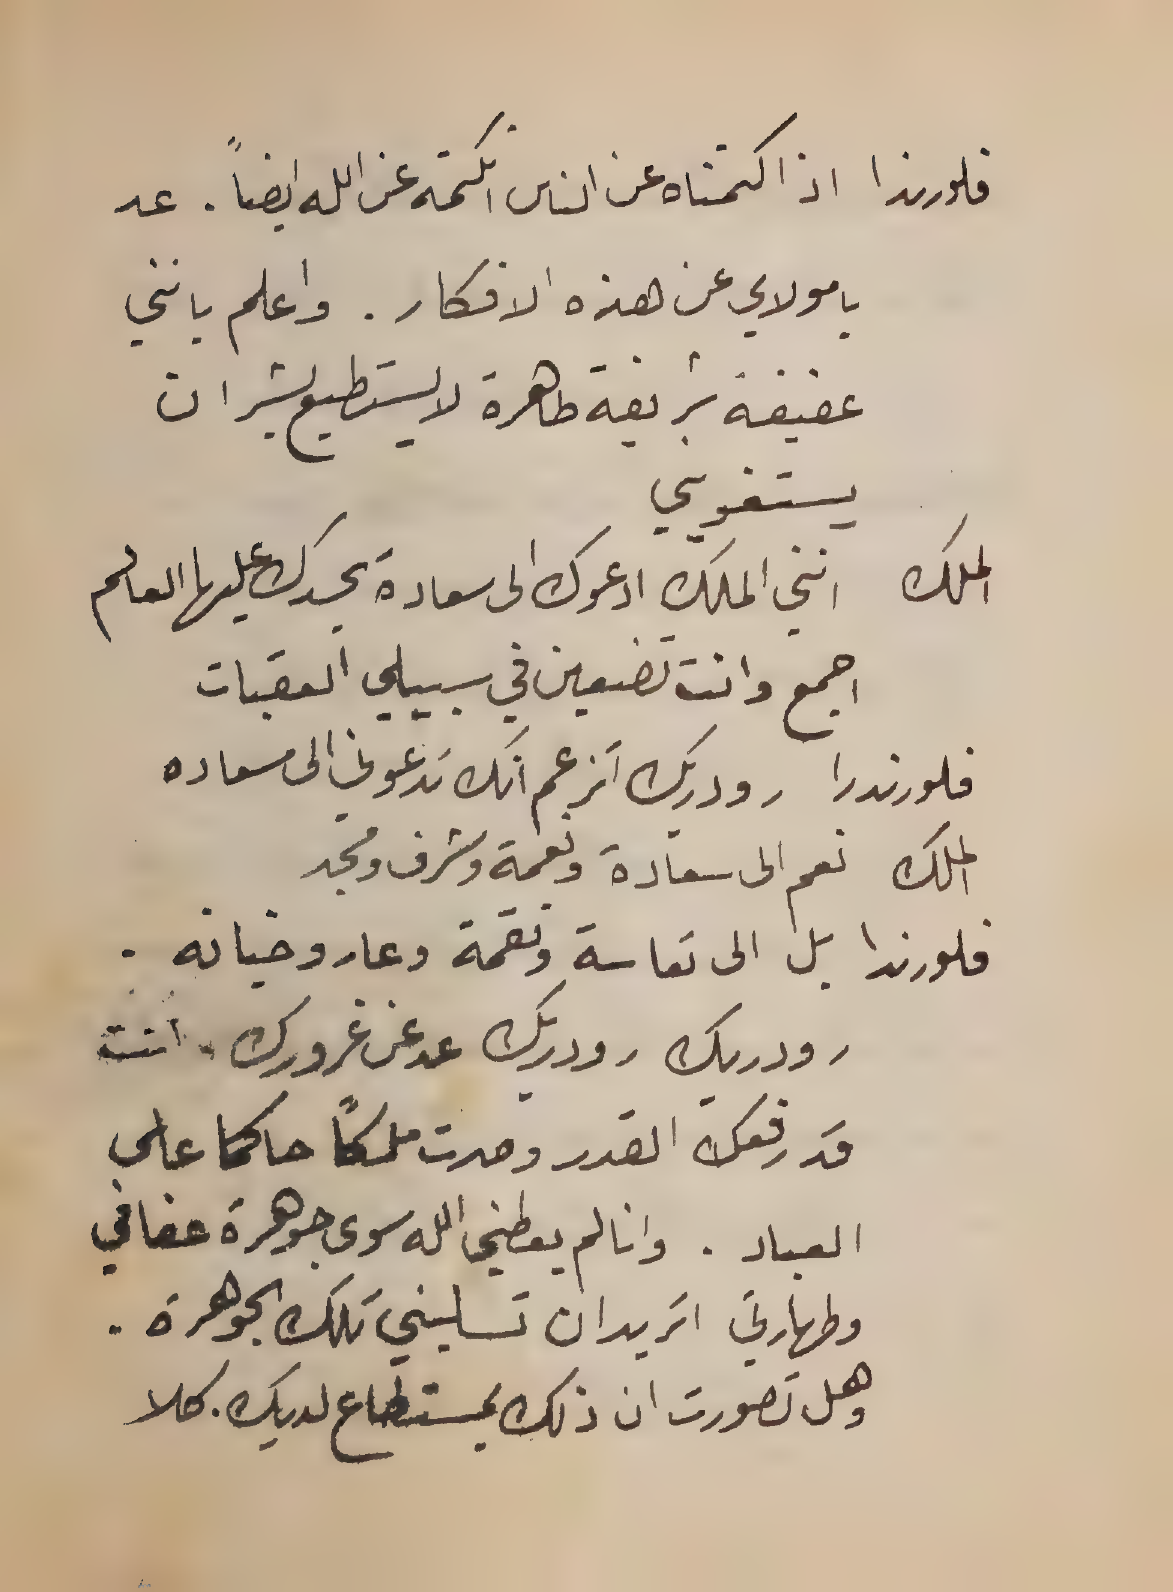 فلورندا اذا كتمناه عن الناس انكتمه عن الله ايضاً . عد
يا مولاي عن هذه الافكار . واعلم بانني
عفيفة شريفة طاهرة لا يستطيع بشر ان
يستغويني
الملك انني الملك ادعوك الى سعادة يحسدك عليها العالم
اجمع وانت تضعين في سبيلي العقبات
فلورندرا رودريك اتزعم انك تدعوني الى سعاده
الملك نعم الى سعادة ونعمة وشرف ومجد
فلورندا بل الى تعاسة ونقمة وعار وخيانه .
رودريك رودريك عد عن غرورك . انت
قد رفعك القدر وصرت ملكاً حاكما على
العباد . وانا لم يعطني الله سوى جوهرة عفافي
وطهارتي اتريد ان تسلبني تلك الجوهرة .
وهل تصورت ان ذلك بمستطاع لديك . كلا